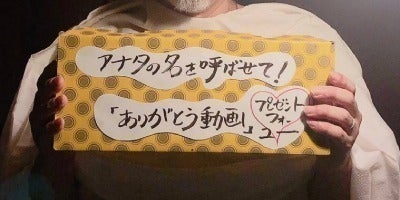 アナタの名を呼ばせて!
「ありがとう動画」
プレゼント
フォー
ユー